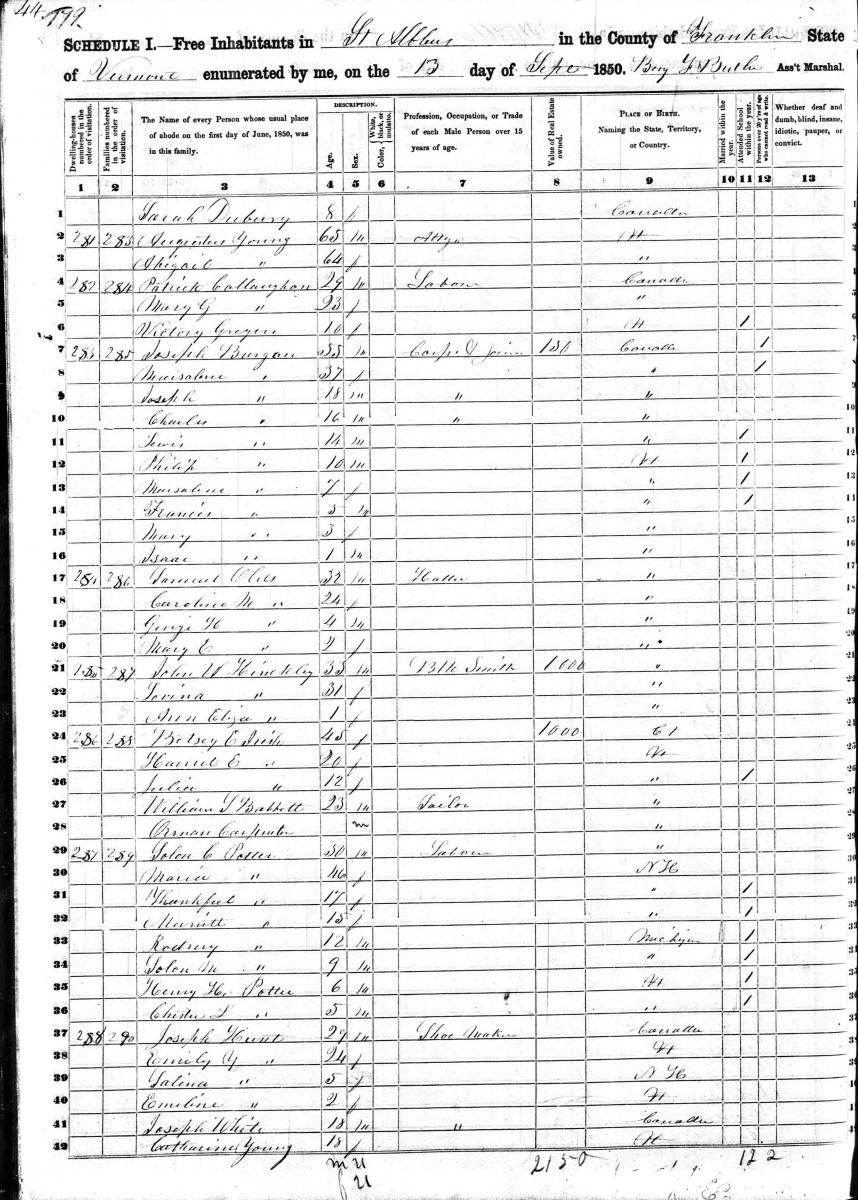 44 799
SCHEDULE I.—Free Inhabitants in St Albans in the County of Franklin State
of Vermont enumerated by me, on the 13 day of Sept 1850. Benj F Butler Ass't Marshal.
Dwelling-houses numbered in the order of visitation.
Families numbered in the order of visitation.
The Name of every Person whose usual place of abode on the first day of June, 1850, was in this family.
DESCRIPTION.
Age.
Sex.
Color, White, black, or mulatto.
Profession, Occupation, or Trade of each Male Person over 15 years of age.
Value of Real Estate owned.
PLACE OF BIRTH. Naming the State, Territory, or Country.
Married within the year.
Attended School within the year.
Persons over 20 y'rs of age who cannot read & write.
Whether deaf and dumb, blind, insane, idiotic, pauper, or convict.
1 2 3 4 5 6 7 8 9 10 11 12 13
1 Sarah Dubury 8 f Canada
2 281 283 Augustus Young 65 m Atty Vt
3 Abigail " 64 f "
4 282 284 Patrick Callaughan 29 m Labour Canada
5 Mary G " 23 f "
6 Victory 10 f Vt 1
7 283 285 Joseph Burgau 35 m Carp & Joiner 150 Canada 1
8 Marsaline " 37 f " 1
9 Joseph " 18 m " "
10 Charles " 16 m " "
11 Lewis " 14 m " 1
12 Philip " 10 m Vt 1
13 Marsaline " 7 f " 1
14 Francis " 5 m " 1
15 Mary " 3 f "
16 Isaac " 1 m "
17 284 286 Samuel 32 m Hatter "
18 Caroline M " 24 f "
19 George H " 4 m "
20 Mary E " 2 f "
21 285 287 John W Hinckley 33 m Blk Smith 1000 "
22 Lovina " 31 f "
23 Ann Eliza " 1 f "
24 286 288 Betsey E Irish 45 f 1000 Ct
25 Harriet E " 20 f Vt
26 Julia " 12 f " 1
27 William S Babbitt 23 m Tailor "
28 Orman Carpenter m "
29 287 289 Solon C Potter 50 m Labour "
30 Maria " 46 f NH
31 Thankful " 17 f " 1
32 Merritt " 15 f " 1
33 Rodney " 12 m Michigan 1
34 Solon M " 9 m " 1
35 Henry H. Potter 6 m Vt 1
36 Chester L " 5 m " 1
37 288 290 Joseph Hunt 29 m Shoe Maker Canada
38 Emily Y " 24 f Vt
39 Salina " 5 f NH
40 Emiline " 2 f Vt
41 Joseph White 18 m " Canada
42 Catharine Young 18 f Vt
m 21
f 21
2150 12 2